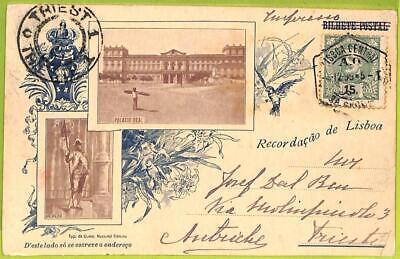 TRIESTE 1
Impresso
BILHETE POSTAL
LISBOA CENTRAL
15
PALACIO REAL
Recordação de Lisboa
Josef Dal Ben
Via Molinpiccolo 3
Autriche Trieste
ARCHEIRO
Typ. da Comp. Nacional Editora
D'este lado só se escreve o endereço